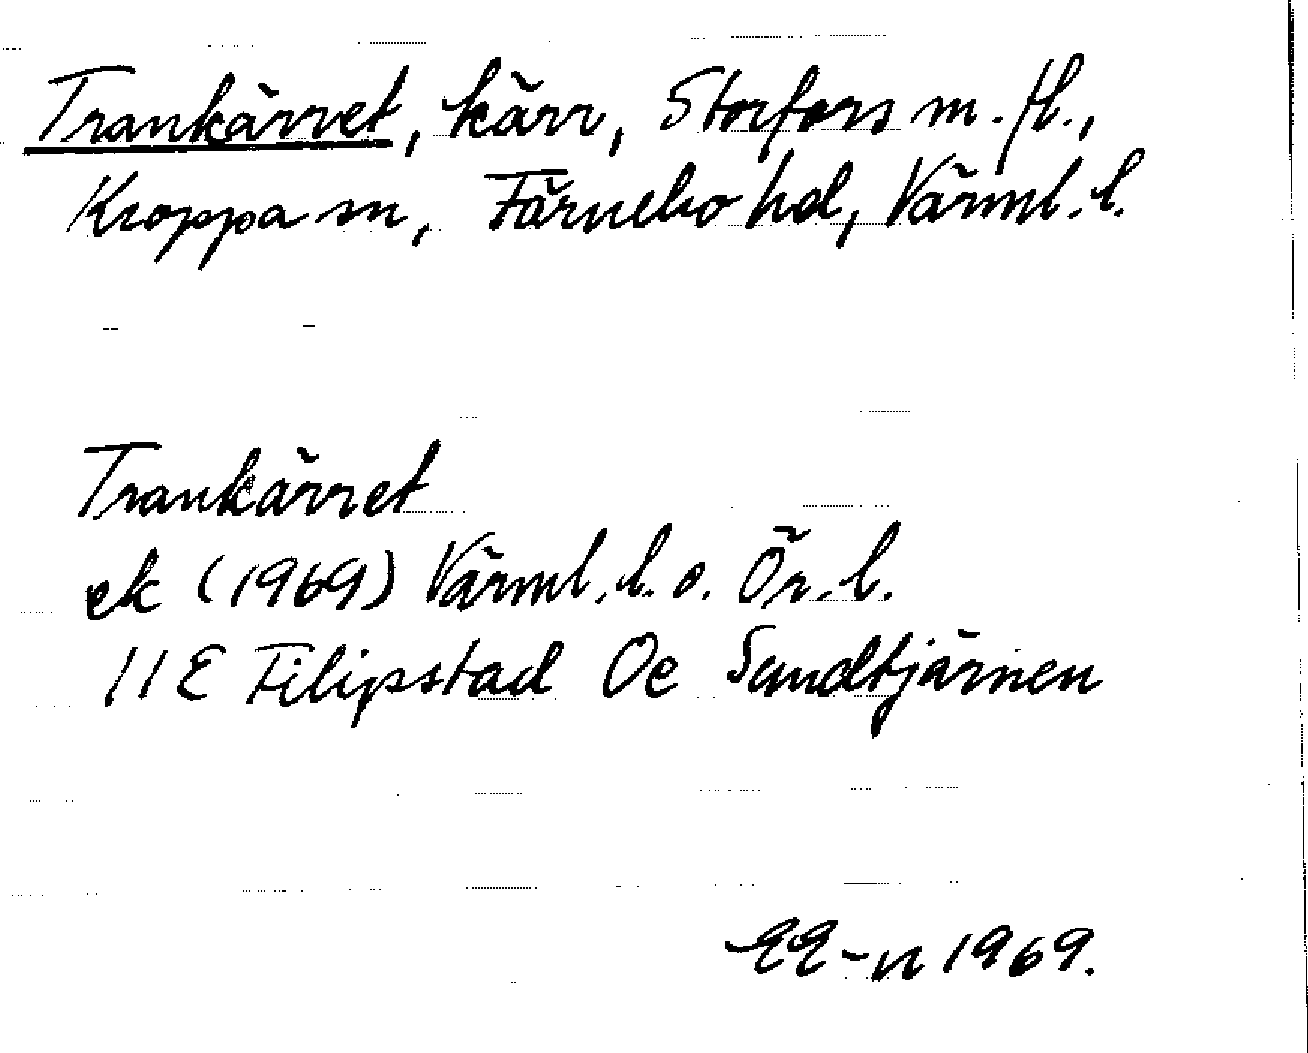 Trankärret, kärr, Storfors m.fl.,
Kroppa sn, Färnebo hd, Värml.l.
Trankärret
ek (1969) Värml.l. o. Ör.l.
11E Filipstad Oe Sandtjärnen
EE-n 1969.